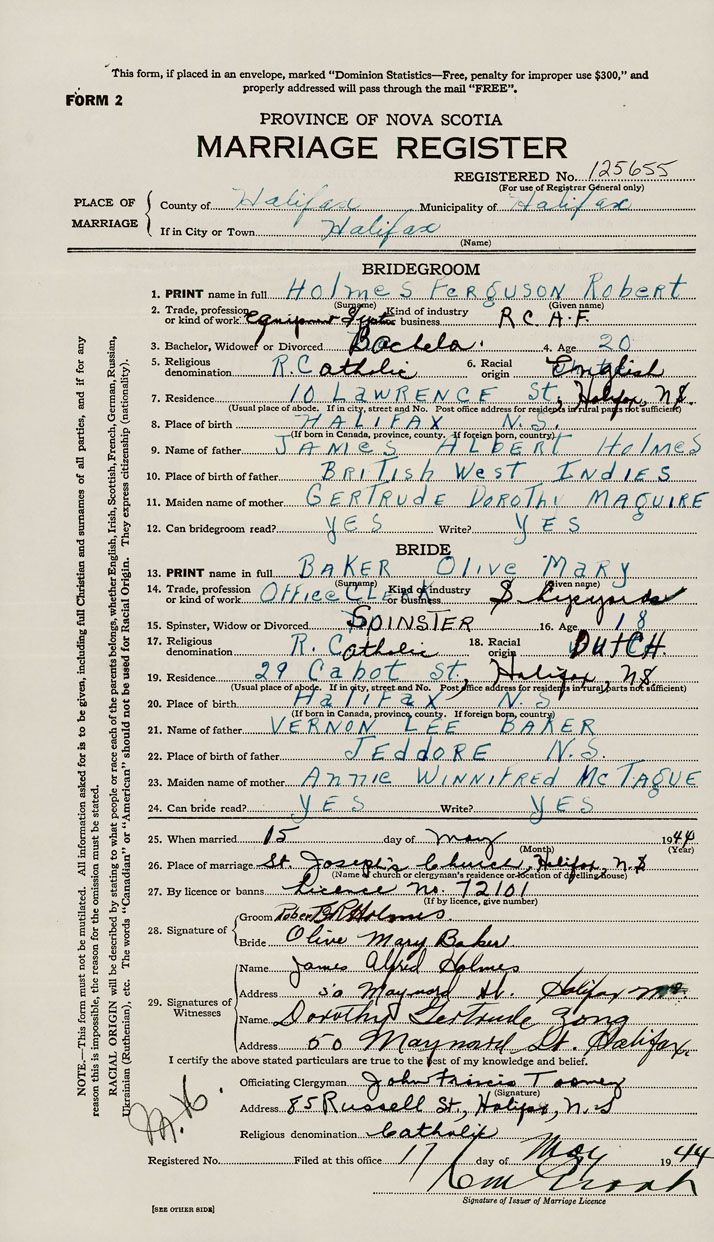 This form, if placed in an envelope, marked "Dominion Statistics—Free, penalty for improper use $300," and
properly addressed will pass through the mail "FREE".
FORM 2
PROVINCE OF NOVA SCOTIA
MARRIAGE REGISTER
REGISTERED No. 125655
(For use of Registrar General only)
PLACE OF MARRIAGE
County of Halifax Municipality of Halifax
If in City or Town Halifax
(Name)
BRIDEGROOM
1. PRINT name in full Holmes Ferguson Robert
(Surname) (Given name)
2. Trade, profession or kind of work Kind of industry or business R C A F.
3. Bachelor, Widower or Divorced Bachelor 4. Age 20
5. Religious denomination R. Catholic 6. Racial origin English
7. Residence 10 LAWRENCE St, Halifax, N.S.
(Usual place of abode. If in city, street and No. Post office address for residents in rural parts not sufficient)
8. Place of birth HALIFAX N.S.
(If born in Canada, province, county. If foreign born, country)
9. Name of father JAMES ALBERT HOLMES
10. Place of birth of father BRITISH WEST INDIES
11. Maiden name of mother GERTRUDE DOROTHY MAGUIRE
12. Can bridegroom read? YES Write? YES
BRIDE
13. PRINT name in full BAKER Olive MARY
(Surname) (Given name)
14. Trade, profession or kind of work Office CLERK Kind of industry or business Shipyards
15. Spinster, Widow or Divorced SPINSTER 16. Age 18
17. Religious denomination R. Catholic 18. Racial origin DUTCH.
19. Residence 29 Cabot St., Halifax, N.S
(Usual place of abode. If in city, street and No. Post office address for residents in rural parts not sufficient)
20. Place of birth HALIFAX N.S.
(If born in Canada, province, county. If foreign born, country)
21. Name of father VERNON LEE BAKER
22. Place of birth of father JEDDORE N.S.
23. Maiden name of mother ANNIE WINNIFRED McTAGUE
24. Can bride read? YES Write? YES
25. When married 15 day of May 1944
(Month) (Year)
26. Place of marriage St. Joseph's Church, Halifax, N.S
(Name of church or clergyman's residence or location of dwelling house)
27. By licence or banns Licence no. 72101
(If by licence, give number)
28. Signature of
Groom Robert Holmes
Bride Olive Mary Baker
29. Signatures of Witnesses
Name James Alfred Holmes
Address 50 Maynard St. Halifax
Name Dorothy Gertrude
Address 50 Maynard St. Halifax
I certify the above stated particulars are true to the best of my knowledge and belief.
Officiating Clergyman John Francis Toomey
(Signature)
Address 85 Russell St., Halifax, N.S
Religious denomination Catholic
Registered No. Filed at this office 17 day of May 1944
Signature of Issuer of Marriage Licence
[SEE OTHER SIDE]
NOTE.—This form must not be mutilated. All information asked for is to be given, including full Christian and surnames of all parties, and if for any
reason this is impossible, the reason for the omission must be stated.
RACIAL ORIGIN will be described by stating to what people or race each of the parents belongs, whether English, Irish, Scottish, French, German, Russian,
Ukrainian (Ruthenian), etc. The words "Canadian" or "American" should not be used for Racial Origin. They express citizenship (nationality).